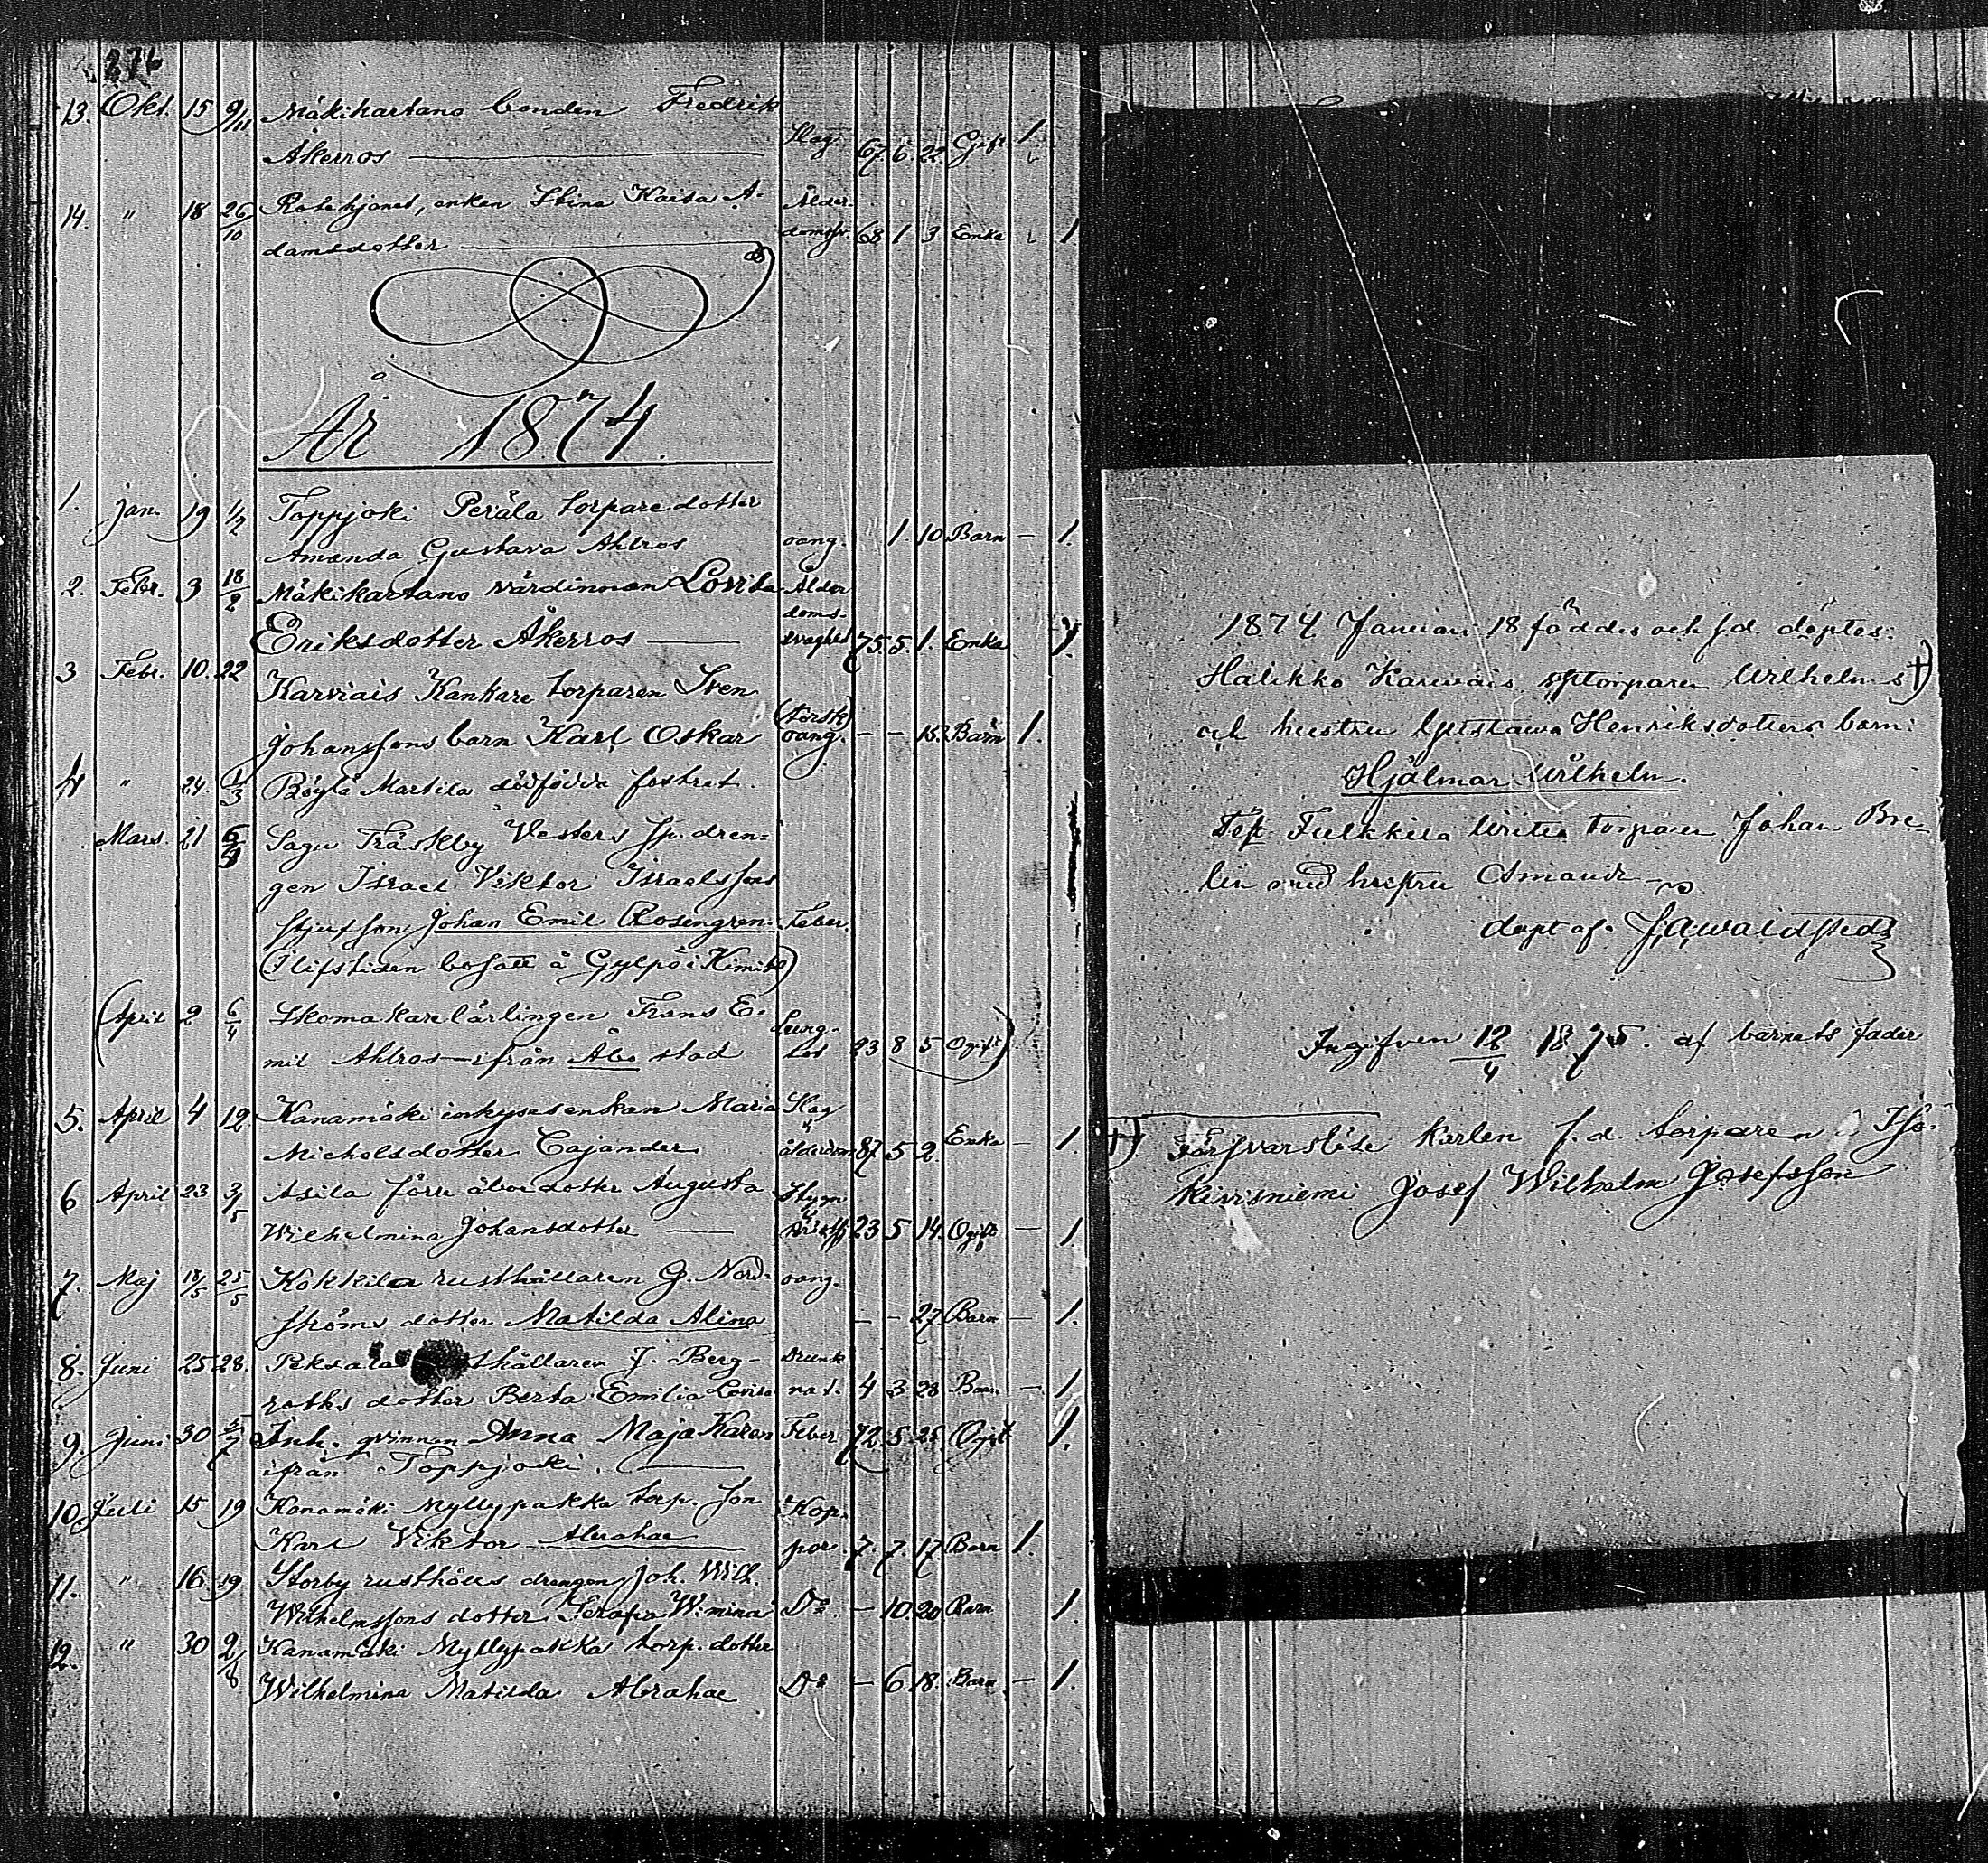 276
13. Okt. 15 9/11 Mäkikartano bonden Fredrik
Åkerros Slag. 67. 6. 22. Gift 1.
14. " 18 26/10 Rotehjonet, enkan Stina Kaisa A- Ålder-
damsdotter domssv. 68 1 3 Enka 1.
År 1874.
1. Jan. 19 1/2 Toppjoki Peräla torparedotter
Amanda Gustava Ahlros oang. " 1. 10 Barn – 1.
2. Febr. 3 18/2 Mäkikartano värdinnan Lovisa Ålder
doms-
Eriksdotter Åkerros svaghet 75. 5. 1. Enka 1.
3 Febr. 10. 22 Karviais Kankare torparen Sven
Johanssons barn Karl Oskar (torsk) oang. – – 15. Barn 1.
4 " 24. 1/3 Röylä Martila dödfödda fostret.
Mars. 21 6/4 Sagu Träskby Vesters sp. drän-
gen Israel Viktor Israelssons
stjufson Johan Emil Rosengren. Feber.
(I lifstiden bosatt å Gylpö i Kimito)
(April 2 6/4 Skomakarelärlingen Frans E-
mil Ahlros ifrån Åbo stad Lung-
sot 23 8 5 Ogift)
5. April 4 12. Kanamäki inhysesenkan Maria Slag
Michelsdotter Cajander ålderdom 87. 5 2. Enka – 1.
6 April 23 3/5 Asila förre åboe dotter Augusta Stygn
Wilhelmina Johansdotter 23 5 14. Ogift – 1.
7. Maj 18/5 25/5 Kokkila rusthållaren G. Nord- oang.
ströms dotter Matilda Alina – – 27. Barn – 1.
8. Juni 25 28. Peksala thållaren J. Berg- Drunk
roths dotter Berta Emilia Lovisa nat. 4 3 28 Barn – 1.
9. Juni 30 5/7 Inh. qvinnan Anna Maja Karen Feber 72. 5. 25. Ogift 1.
ifrån Toppjoki.
10. Juli 15 19 Kanamäki Myllypakka torp. son Kop-
Karl Viktor Abrahae por. 7. 7. 17. Barn 1.
11. " 16 19 Storby rusthålls drängen Joh. Wilh.
Wilhelmssons dotter Serafia W:mina Do. – 10. 20 Barn 1.
12. " 30 2/8 Kanamäki Myllypakka torp. dotter
Wilhelmina Matilda Abrahae Do – 6. 18. Barn – 1.
1874 Januari 18 föddes och s.d. döptes:
Halikko Karviais sptorparen Wilhelms †)
och hustru Gustava Henriksdotters barn:
Hjalmar Wilhelm.
Test. Fulkkila torparen Johan Bre-
lin med hustru Amanda
döpt af. J. A. Waldstedt
Ingifven 12/4 1875. af barnets fader
†) Försvarslöse karlen f.d. torparen i Iso-
kivisniemi Josef Wilhelm Josefsson